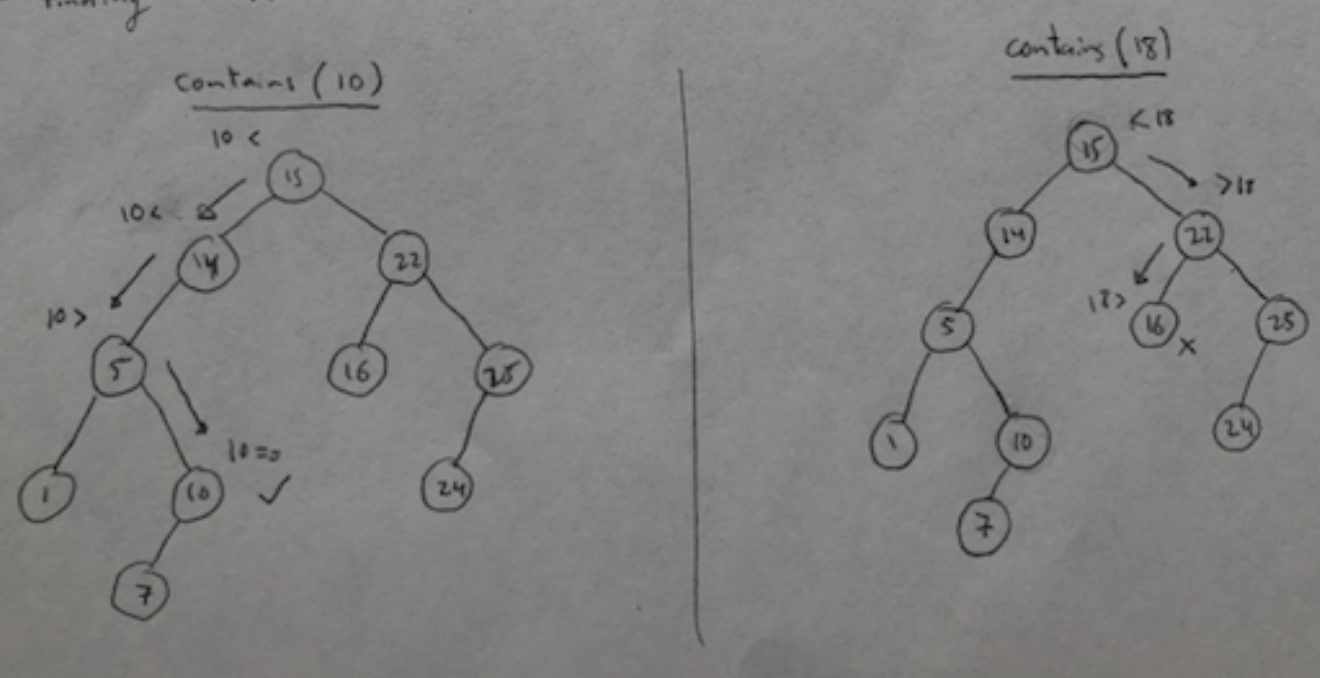 finding
contains (10)
10 <
15
10 <
14
22
10 >
5
16
25
10 ==
1
10
24
7
contains (18)
< 18
15
> 18
14
22
18 >
5
16
25
1
10
24
7